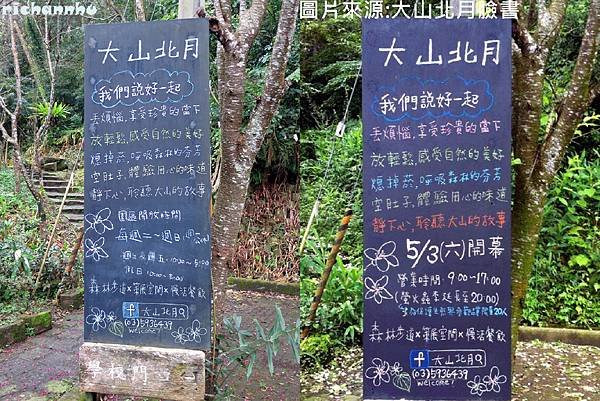 richannhu
大山北月
我們說好一起
丟煩惱,享受珍貴的當下
放輕鬆,感受自然的美好
熄掉菸,呼吸森林的芬芳
空肚子,體驗用心的味道
靜下心,聆聽大山的故事
園區開放時間
每週二~週日
森林步道x策展空間x慢活餐飲
f 大山北月
(03)5936439
welcome!
圖片來源:大山北月臉書
大山北月
我們說好一起
丟煩惱,享受珍貴的當下
放輕鬆,感受自然的美好
熄掉菸,呼吸森林的芬芳
空肚子,體驗用心的味道
靜下心,聆聽大山的故事
5/3(六)開幕
營業時間:9:00~17:00
(螢火蟲季延長至20:00)
森林步道x策展空間x慢活餐飲
f 大山北月
(03)5936439
welcome!